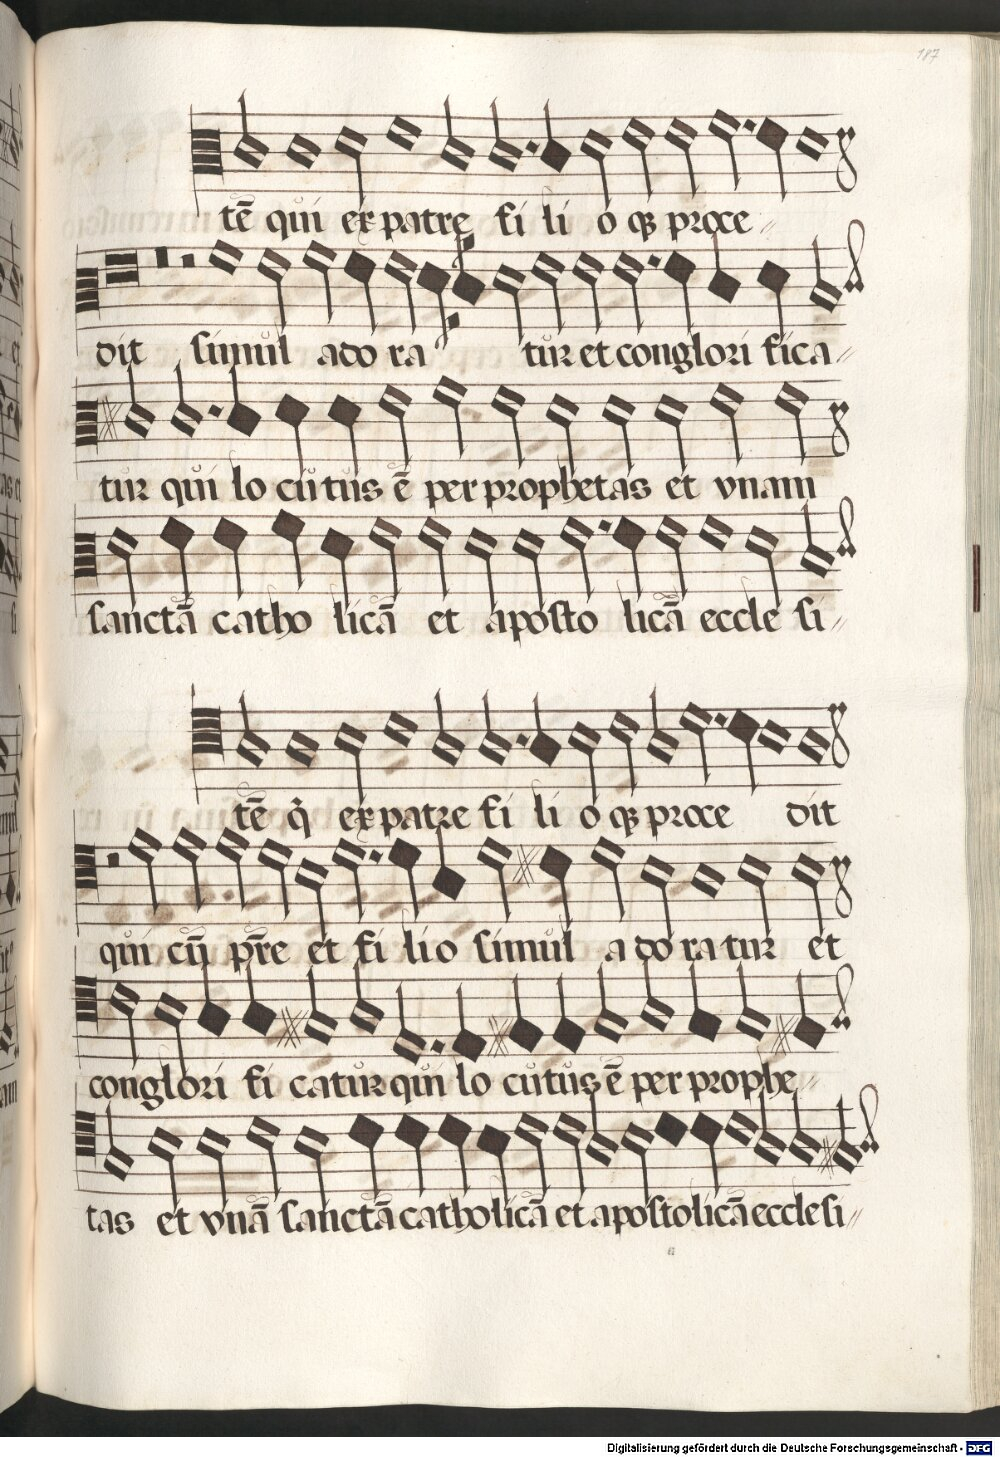 187
tē qui ex patre fi li o qꝫ proce
dit simul ado ra tur et conglori fica
tur qui lo cutus ē per prophetas et vnam
sanctā catho licā et aposto licā eccle si
tē q̇ ex patre fi li o qꝫ proce dit
qui cū pr̄e et fi li o simul a do ra tur et
conglori fi catur qui lo cutus ē per prophe
tas et vnā sanctā catholicā et apostolicā ecclesi
Digitalisierung gefördert durch die Deutsche Forschungsgemeinschaft - DFG